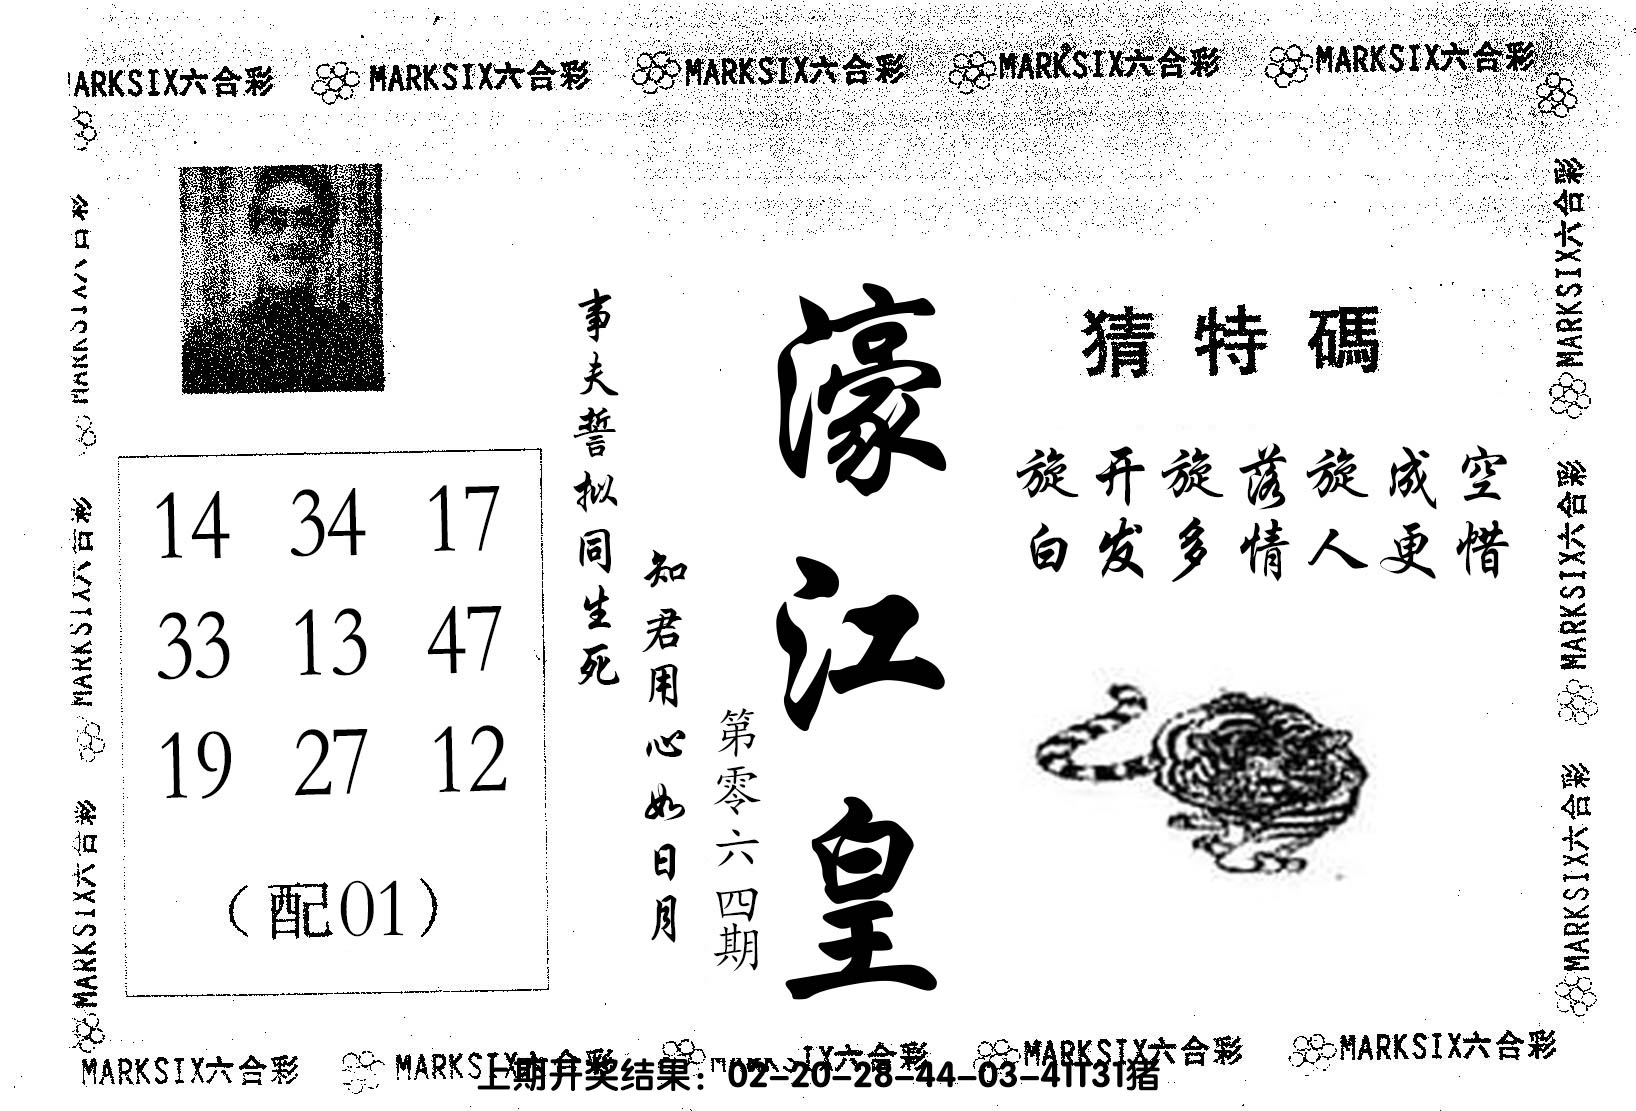 MARKSIX六合彩 MARKSIX六合彩 MARKSIX六合彩 MARKSIX六合彩 MARKSIX六合彩
猜特碼
旋开旋落旋成空
白发多情人更惜
濠江皇
第零六四期
知君用心如日月
事夫誓拟同生死
14 34 17
33 13 47
19 27 12
（配01）
MARKSIX六合彩
MARKSIX六合彩
MARKSIX六合彩
MARKSIX六合彩
MARKSIX六合彩
MARKSIX六合彩
MARKSIX六合彩 MARKSIX六合彩 MARKSIX六合彩 MARKSIX六合彩 MARKSIX六合彩
上期开奖结果：02-20-28-44-03-41T31猪